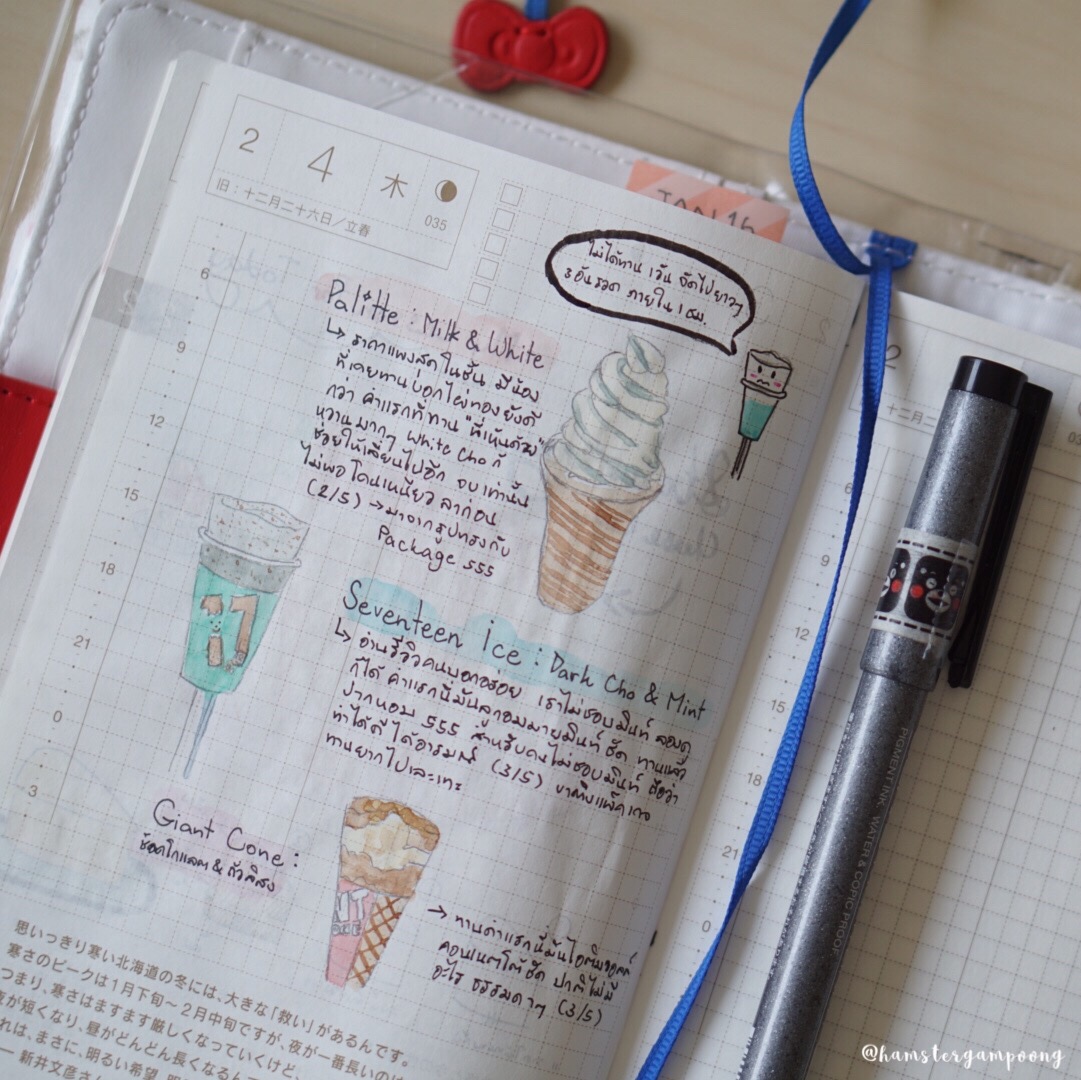 2 4 木
035
旧:十二月二十六日/立春
JAN 16
ไม่ได้ทาน 1 วัน จัดไปยาวๆ
3 อันรวด ภายใน 1 ชม.
Palitte : Milk & White
↳ ราคาแพงสุดในชั้น มีน้อง
ที่เคยทานบอกไผ่ทองยังดี
กว่า คำแรกที่ทาน "พี่เห็นด้วย"
หวานมากๆ White Cho ก็
ช่วยให้เลี่ยนไปอีก จบเท่านั้น
ไม่พอ โคนเหนียวลากอน
(2/5) → มาจากรูปทรงกับ
Package 555
Seventeen ice : Dark Cho & Mint
↳ อ่านรีวิวคนบอกอร่อย เราไม่ชอบมินท์ ลองดู
ก็ได้ คำแรกนี่มันลูกอมมายมินท์ชัด ทานแล้ว
ปากหอม 555 สำหรับคนไม่ชอบมินท์ ถือว่า
ทำได้ดี ได้อารมณ์ (3/5)
ทานยากไปเละเทะ
Giant Cone :
ช็อคโกแลต & ถั่วลิสง
→ ทานคำแรกนี่มันไอติมวอลล์
คอนเนตโต้ชัด ปกติไม่มี
อะไร ธรรมดาๆ (3/5)
6
9
12
15
18
21
0
3
17
思いっきり寒い北海道の冬には、大きな「救い」があるんです。
寒さのピークは1月下旬〜2月中旬ですが、夜が一番長いのは
つまり、寒さはますます厳しくなっていくけど、
夜が短くなり、昼がどんどん長くなるんで
れは、まさに、明るい希望
新井文彦さん
2
十二月二
6
9
12
15
18
21
0
PIGMENT INK WATER & COPIC PROOF
@hamstergampoong